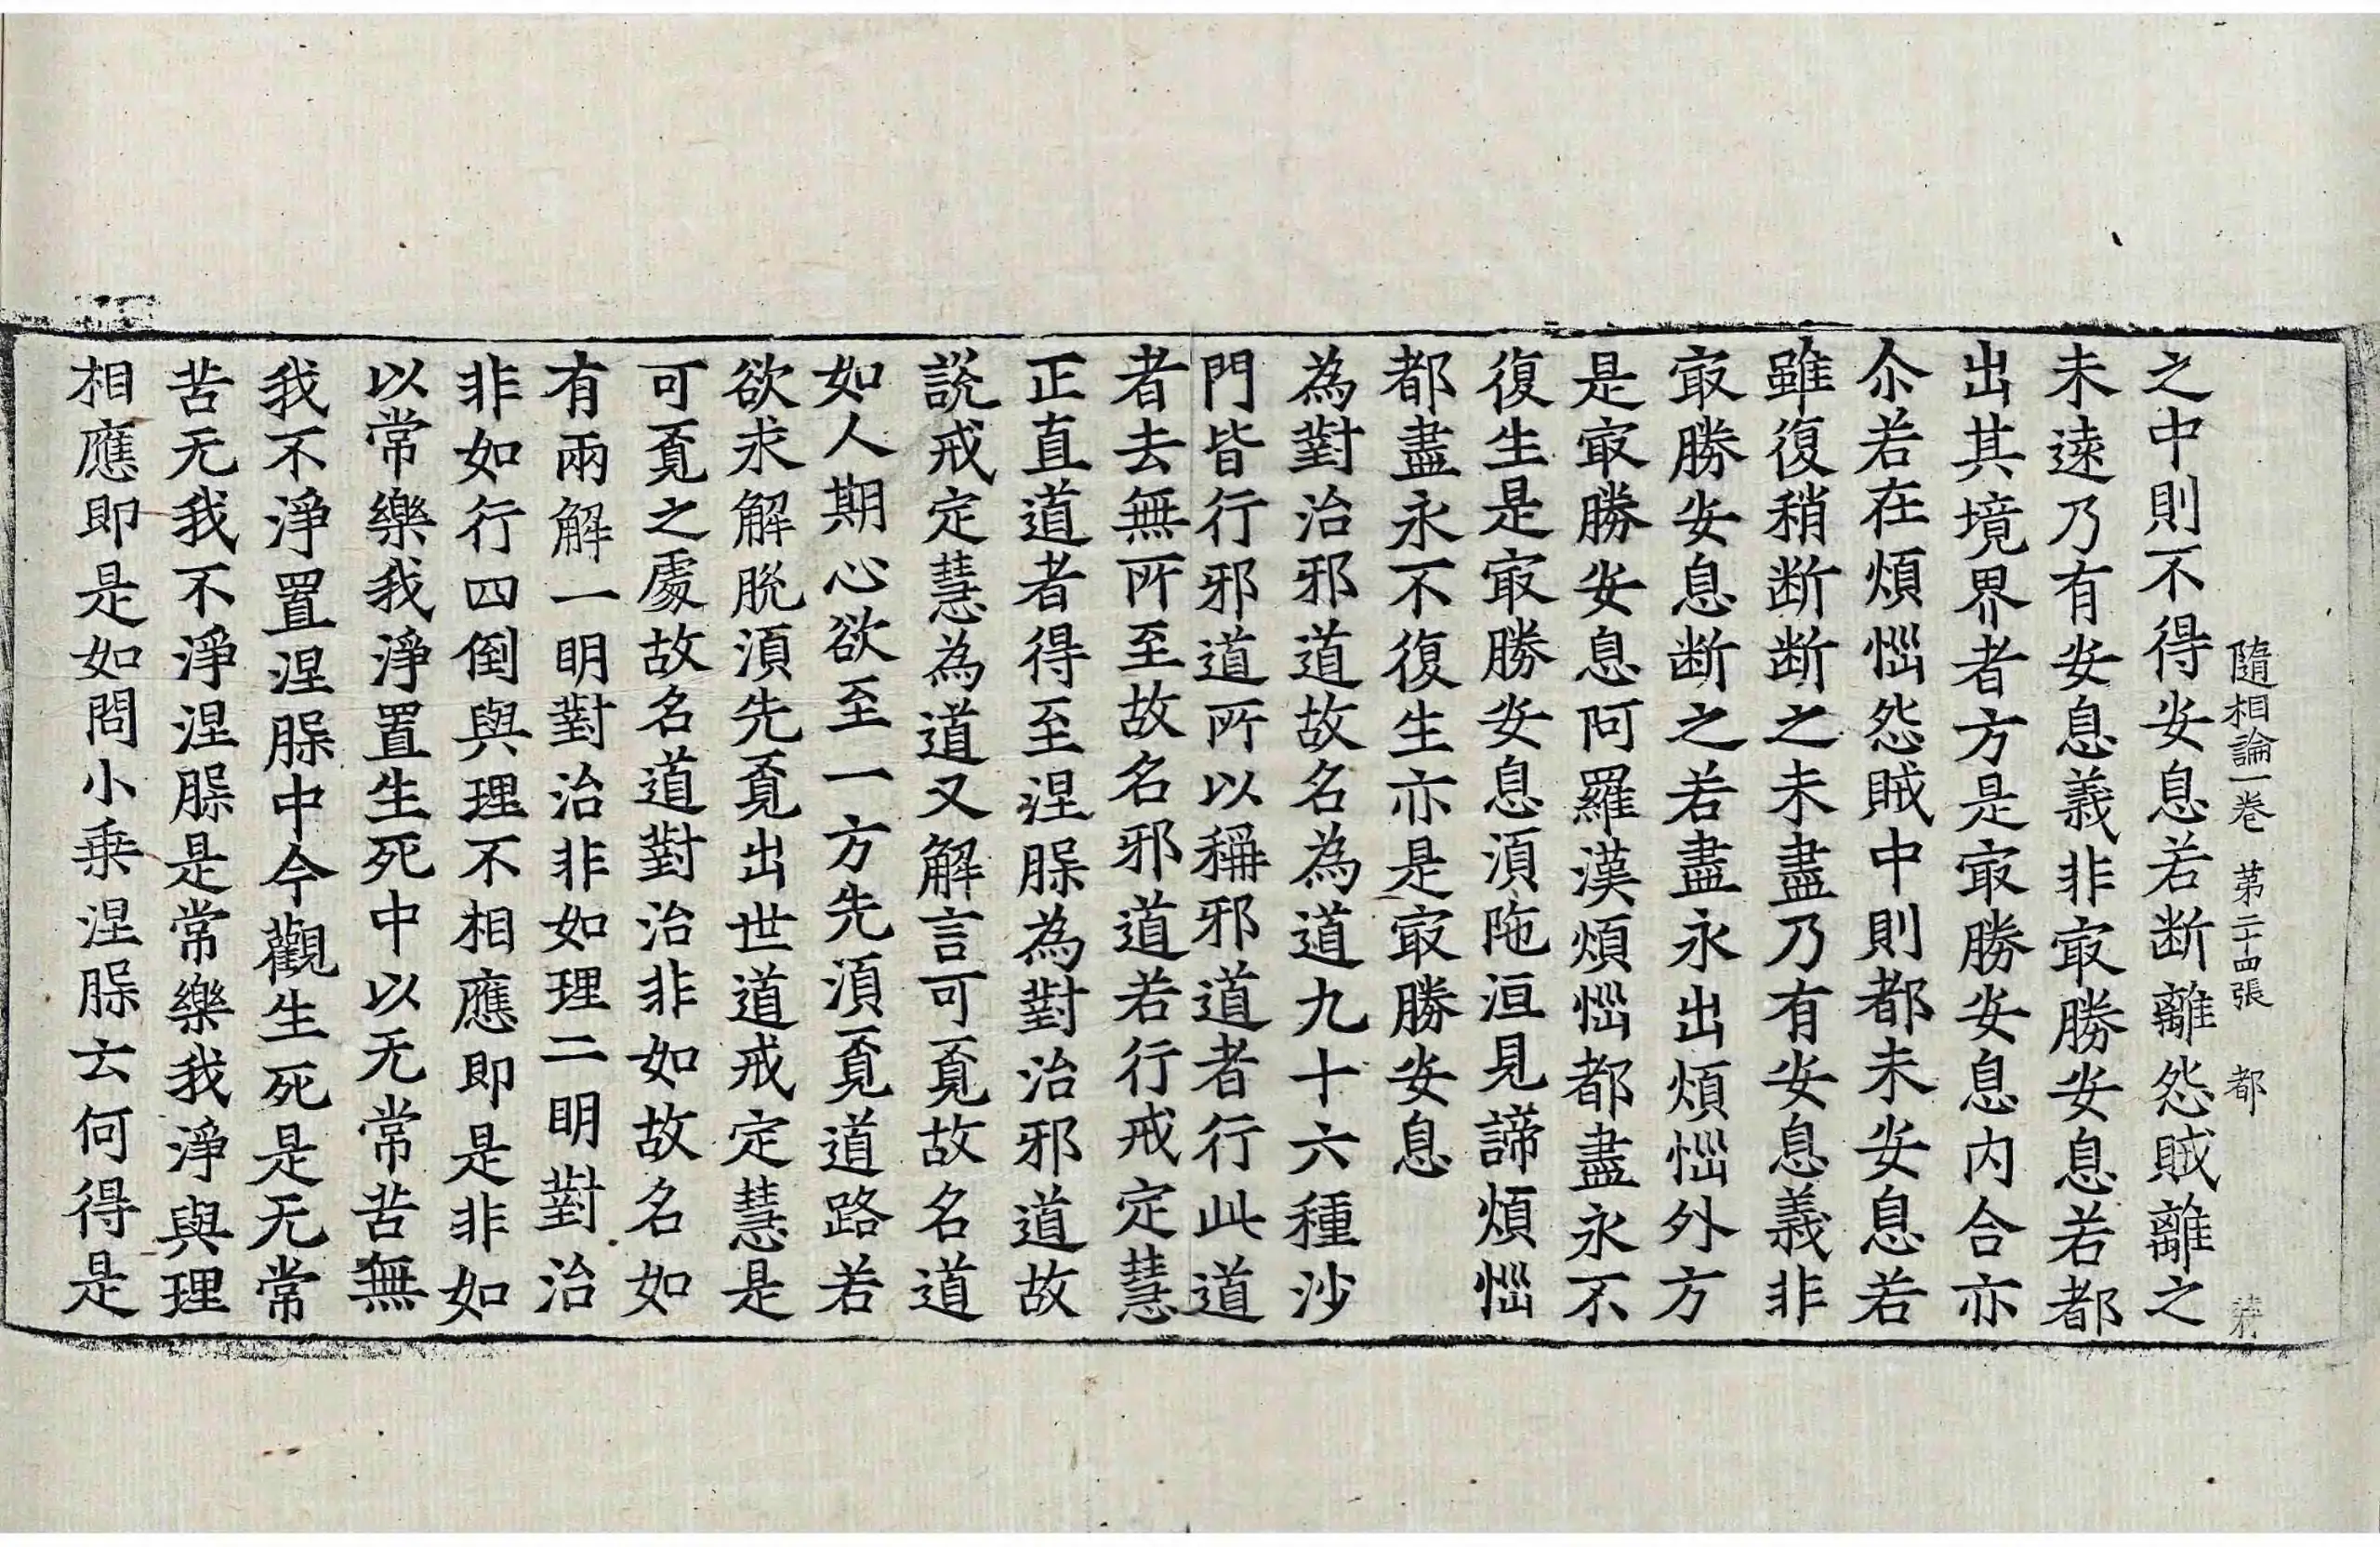 隨相論一卷 第二十四張 都
之中則不得安息若断離怨賊離之
未遠乃有安息義非㝡勝安息若都
出其境界者方是㝡勝安息内合亦
尒若在煩惱怨賊中則都未安息若
雖復稍断断之未盡乃有安息義非
㝡勝安息断之若盡永出煩惱外方
是㝡勝安息阿羅漢煩惱都盡永不
復生是㝡勝安息湏陁洹見諦煩惱
都盡永不復生亦是㝡勝安息
為對治邪道故名為道九十六種沙
門皆行邪道所以稱邪道者行此道
者去無所至故名邪道若行戒定慧
正直道者得至涅槃為對治邪道故
説戒定慧為道又解言可覔故名道
如人期心欲至一方先湏覔道路若
欲求解脫湏先覔出世道戒定慧是
可覔之處故名道對治非如故名如
有兩解一明對治非如理二明對治
非如行四倒與理不相應即是非如
以常樂我淨置生死中以无常苦無
我不淨置涅槃中今觀生死是无常
苦无我不淨涅槃是常樂我淨與理
相應即是如問小乗涅槃云何得是